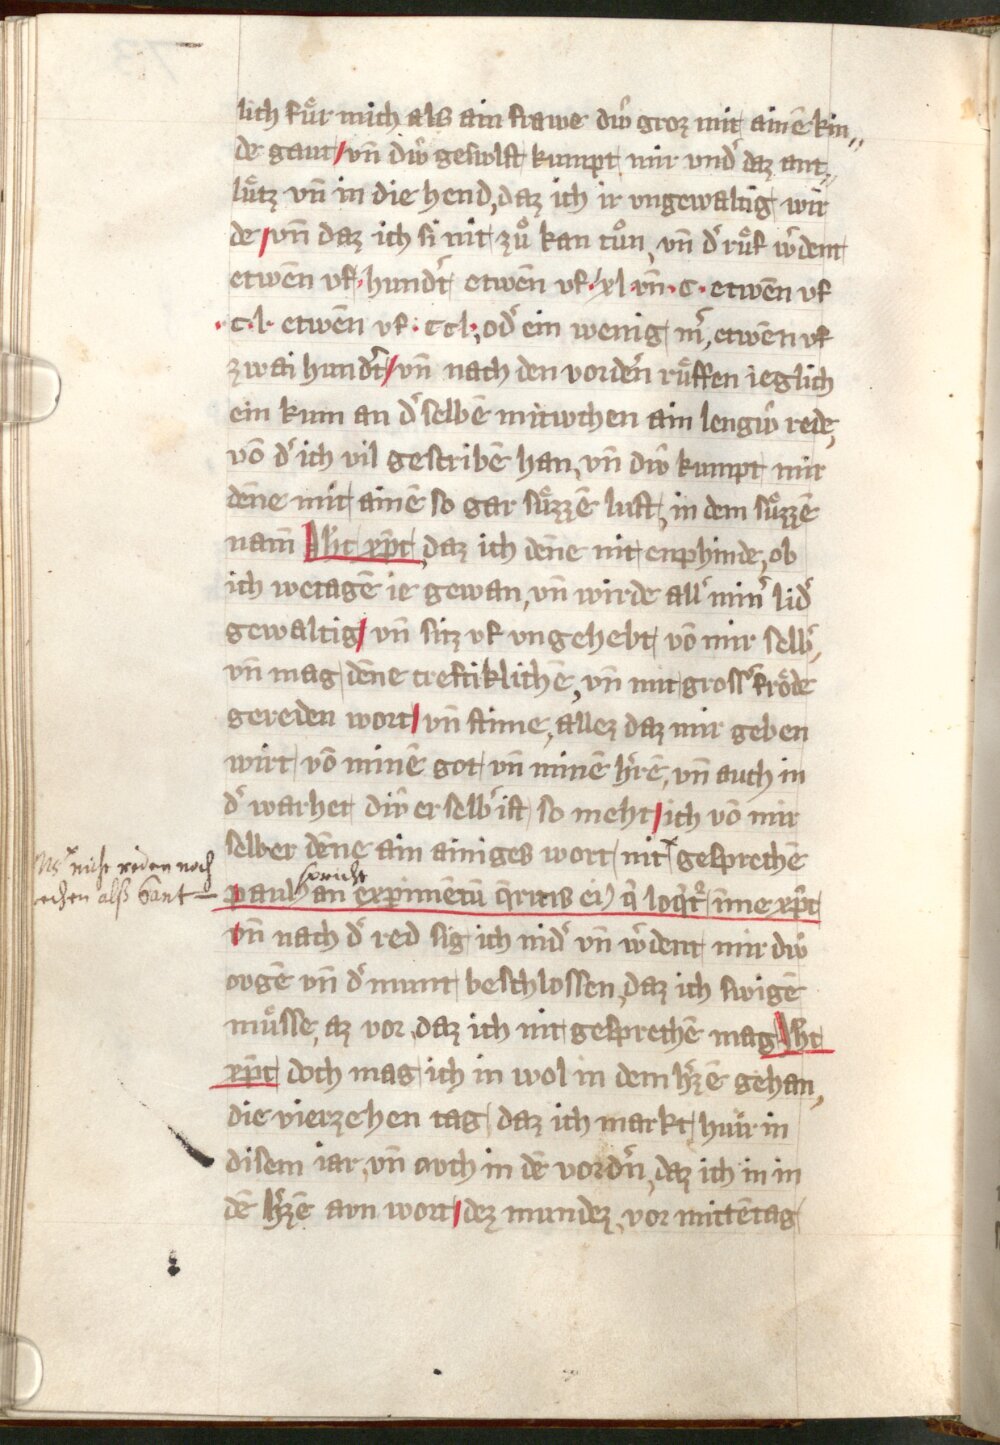 lich fuͦr mich als ain frawe diw̑ groz mit ainē kin„
de gant / vn̄ diw̑ geswlst kumpt mir vnd' daz ant„
luͤtz vn̄ in die hend, daz ich ir vngewaltig wir
de / vn̄ daz ich si nit zuͦ kan tuͦn, vn̄ d' ruͤf w'dent
etwēn vf · hund't etwēn vf · xl · vn̄ · c · etwēn vf
· c · l · etwēn vf · c c l ·, od' ein wenig m', etwēn vf
zwai hund't / vn̄ nach den vorden' ruͤffen ieglich
ein kum an d' selbē mitwchen ain lengiw̑ rede,
vō d' ich vil gescribē han, vn̄ diw̑ kumpt mir
dēne mit ainē so gar suͤzzē lust, in dem suͤzzē
nam̄ Jh'c xp̄c, daz ich dēne nit enphinde, ob
ich wetagē ie gewan, vn̄ wirde all' min' lid'
gewaltig / vn̄ siz vf vngehebt vō mir selb',
vn̄ mag dēne creftiklichē, vn̄ mit gross' froͤde
gereden wort / vn̄ stime, allez daz mir geben
wirt vō minē got vn̄ minē h'rē, vn̄ auch in
d' warhet diw̑ er selb' ist so meht / ich vō mir
selber dēne ain ainiges wort nit gesprechē
Nicht reden noch
echen alß Sant
spricht
paul' an exp̄imētū q̄ritis ei' q̄ loq̄t' īme xp̄c
vn̄ nach d' red sig ich nid' vn̄ w'dent mir diw̑
ovgē vn̄ d' munt beschlossen, daz ich swigē
muͤsse, az vor, daz ich nit gesprechē mag Jh'c
xp̄c doch mag ich in wol in dem h'zē gehan,
die vierzehen tag daz ich markt hiur in
disem iar, vn̄ ovch in dē vord'n, daz ich in in
dē h'zē avn wort / dez mundez vor mittētag